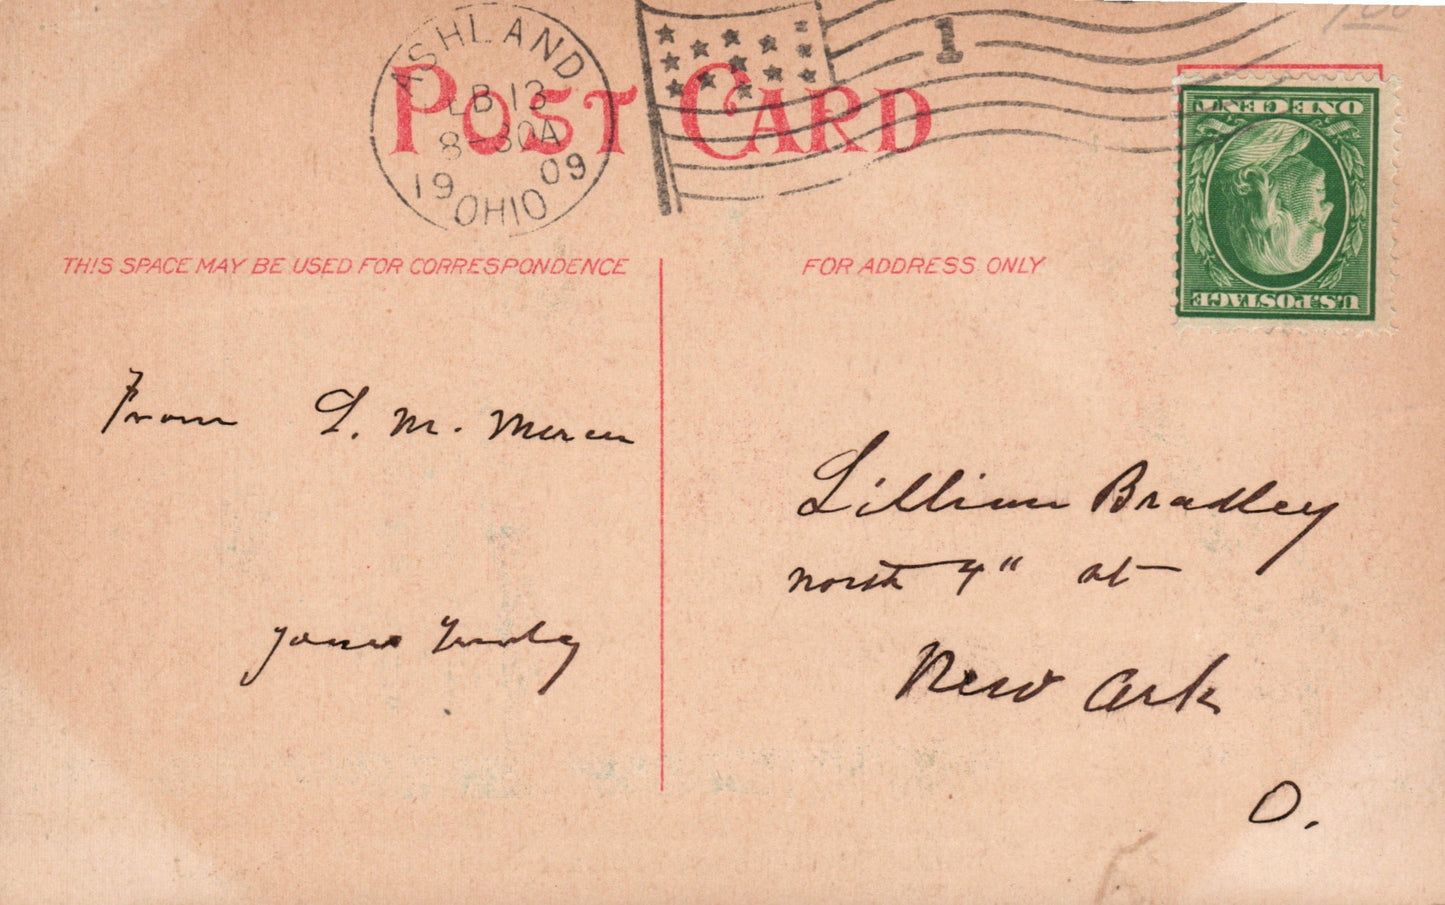 ASHLAND
FEB 13
8-30A
1909
OHIO
1
POST CARD
ONE CENT
U.S.POSTAGE
THIS SPACE MAY BE USED FOR CORRESPONDENCE
FOR ADDRESS ONLY
From L. M. Mercer
Yours Truly
Lillian Bradley
North 4" st
New ark
O.